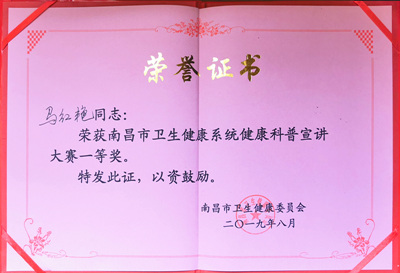 荣誉证书
马红艳同志：
荣获南昌市卫生健康系统健康科普宣讲
大赛一等奖。
特发此证，以资鼓励。
南昌市卫生健康委员会
二〇一九年八月